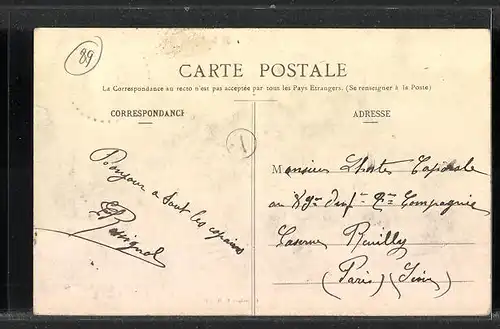 89
CARTE POSTALE
La Correspondance au recto n'est pas acceptée par tous les Pays Etrangers. (Se renseigner à la Poste)
CORRESPONDANCE
Bonjour a tout les copains
ADRESSE
Monsieur Lhoste Caporale
au Compagnie
Caserne Reuilly
(Paris) (Seine)